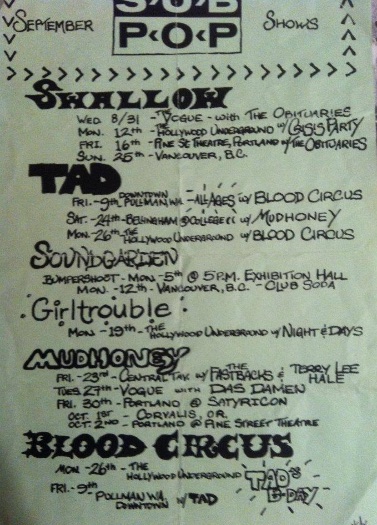 SUB
POP
SEPTEMBER SHOWS
SWALLOW
WED. 8/31 - VOGUE - WITH THE OBITUARIES
MON. 12th - HOLLYWOOD UNDERGROUND W/ CRISIS PARTY
FRI. 16th - PINE ST. THEATRE, PORTLAND W/ THE OBITUARIES
SUN. 25th - VANCOUVER, B.C.
TAD
FRI. - 9th DOWNTOWN PULLMAN WA. - ALL AGES W/ BLOOD CIRCUS
SAT. - 24th - BELLINGHAM @ COLLEGE W/ MUDHONEY
MON. 26th - THE HOLLYWOOD UNDERGROUND W/ BLOOD CIRCUS
SOUNDGARDEN
BUMPERSHOOT - MON - 5th @ 5 P.M. EXHIBITION HALL
MON. - 12th - VANCOUVER, B.C. - CLUB SODA
Girltrouble
MON - 19th - THE HOLLYWOOD UNDERGROUND W/ NIGHT & DAYS
MUDHONEY
FRI. - 23rd - CENTRAL TAV. W/ THE FASTBACKS & TERRY LEE HALE
TUES. 27th - VOGUE WITH DAS DAMEN
FRI. 30th - PORTLAND @ SATYRICON
OCT. 1st - CORVALIS, OR.
OCT. 2nd - PORTLAND @ PINE STREET THEATRE
BLOOD CIRCUS
MON - 26th - THE HOLLYWOOD UNDERGROUND
TAD'S B-DAY
FRI. - 9th PULLMAN WA. DOWNTOWN W/ TAD